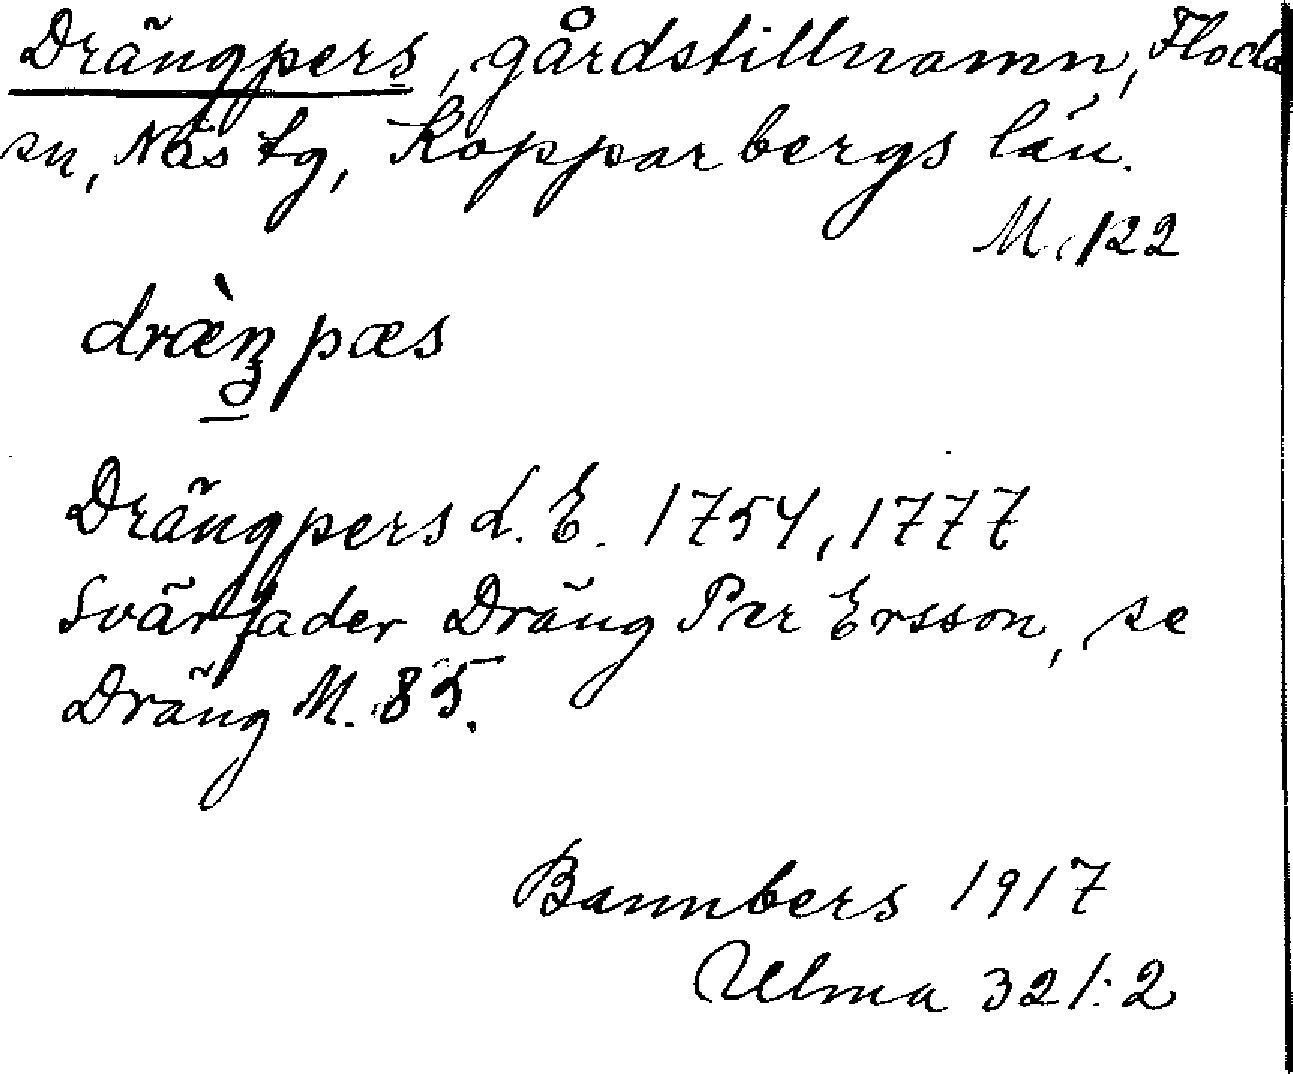 Drängpers, gårdstillnamn, Floda
sn, Nås tg, Kopparbergs län.
M. 122
dræ̀ŋpæs
Drängpers d. E. 1754, 1777
Svärfader Dräng Per Ersson, se
Dräng M. 85.
Bannbers 1917
Ulma 321:2